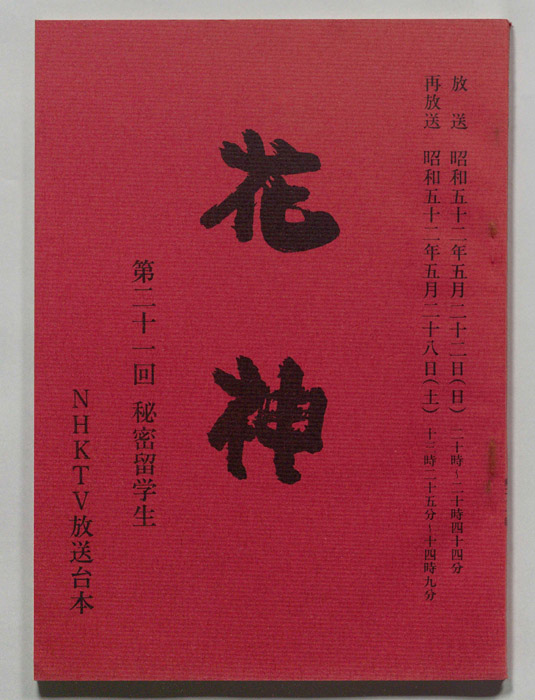 放送 昭和五十二年五月二十二日(日) 二十時~二十時四十四分
再放送 昭和五十二年五月二十八日(土) 十三時二十五分~十四時九分
花神
第二十一回 秘密留学生
NHKTV放送台本